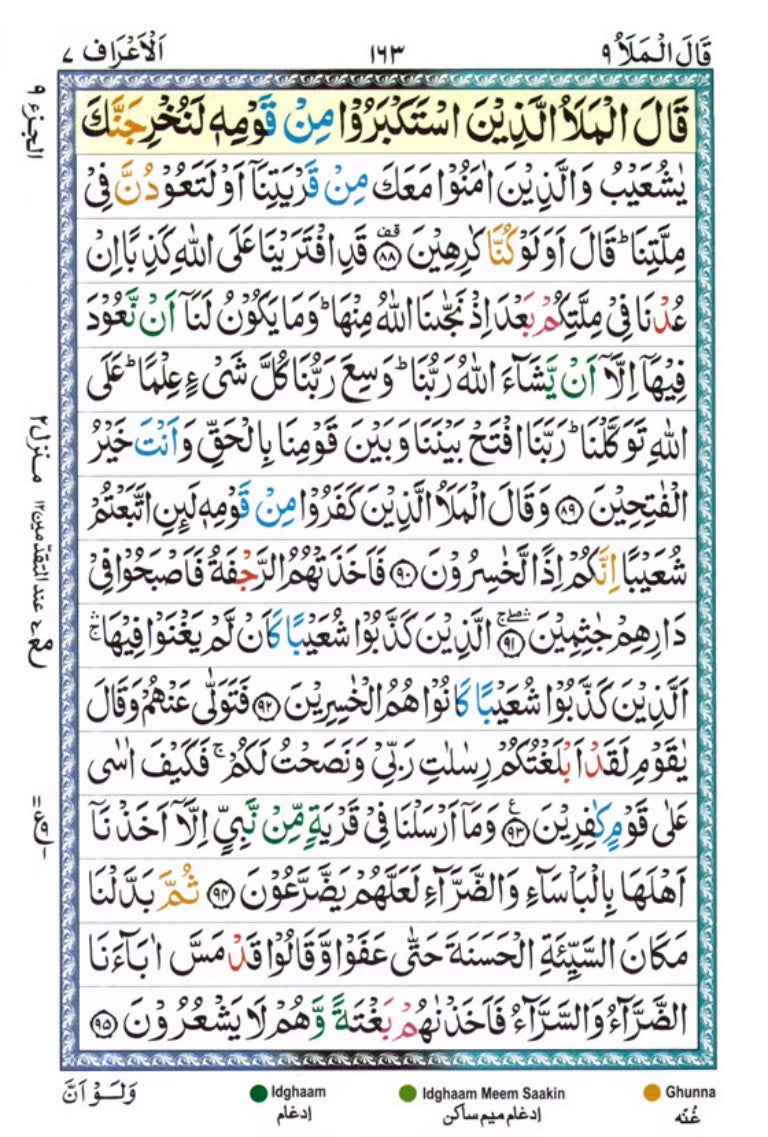 قَالَ الْمَلَاُ ٩ ١٦٣ اَلْاَعْرَاف ٧
الجزء ٩
قَالَ الْمَلَاُ الَّذِيْنَ اسْتَكْبَرُوْا مِنْ قَوْمِهٖ لَنُخْرِجَنَّكَ
يٰشُعَيْبُ وَالَّذِيْنَ اٰمَنُوْا مَعَكَ مِنْ قَرْيَتِنَاۤ اَوْ لَتَعُوْدُنَّ فِيْ
مِلَّتِنَا ؕ قَالَ اَوَلَوْ كُنَّا كٰرِهِيْنَ ۟ قف ٨٨ قَدِ افْتَرَيْنَا عَلَى اللّٰهِ كَذِبًا اِنْ
عُدْنَا فِيْ مِلَّتِكُمْ بَعْدَ اِذْ نَجّٰىنَا اللّٰهُ مِنْهَا ؕ وَمَا يَكُوْنُ لَنَاۤ اَنْ نَّعُوْدَ
فِيْهَاۤ اِلَّاۤ اَنْ يَّشَآءَ اللّٰهُ رَبُّنَا ؕ وَسِعَ رَبُّنَا كُلَّ شَيْءٍ عِلْمًا ؕ عَلَى
اللّٰهِ تَوَكَّلْنَا ؕ رَبَّنَا افْتَحْ بَيْنَنَا وَبَيْنَ قَوْمِنَا بِالْحَقِّ وَاَنْتَ خَيْرُ
الْفٰتِحِيْنَ ٨٩ وَقَالَ الْمَلَاُ الَّذِيْنَ كَفَرُوْا مِنْ قَوْمِهٖ لَىِٕنِ اتَّبَعْتُمْ
شُعَيْبًا اِنَّكُمْ اِذًا لَّخٰسِرُوْنَ ٩٠ فَاَخَذَتْهُمُ الرَّجْفَةُ فَاَصْبَحُوْا فِيْ
دَارِهِمْ جٰثِمِيْنَ ٩١ الَّذِيْنَ كَذَّبُوْا شُعَيْبًا كَاَنْ لَّمْ يَغْنَوْا فِيْهَا ۛۚ
اَلَّذِيْنَ كَذَّبُوْا شُعَيْبًا كَانُوْا هُمُ الْخٰسِرِيْنَ ٩٢ فَتَوَلّٰى عَنْهُمْ وَقَالَ
يٰقَوْمِ لَقَدْ اَبْلَغْتُكُمْ رِسٰلٰتِ رَبِّيْ وَنَصَحْتُ لَكُمْ ۚ فَكَيْفَ اٰسٰى
عَلٰى قَوْمٍ كٰفِرِيْنَ ع ٩٣ وَمَاۤ اَرْسَلْنَا فِيْ قَرْيَةٍ مِّنْ نَّبِيٍّ اِلَّاۤ اَخَذْنَاۤ
اَهْلَهَا بِالْبَاْسَآءِ وَالضَّرَّآءِ لَعَلَّهُمْ يَضَّرَّعُوْنَ ٩٤ ثُمَّ بَدَّلْنَا
مَكَانَ السَّيِّئَةِ الْحَسَنَةَ حَتّٰى عَفَوْا وَّقَالُوْا قَدْ مَسَّ اٰبَآءَنَا
الضَّرَّآءُ وَالسَّرَّآءُ فَاَخَذْنٰهُمْ بَغْتَةً وَّهُمْ لَا يَشْعُرُوْنَ ٩٥
منزل ٢
عند المتقدّمين ١٢
وَلَوْ اَنَّ
Idghaam Idghaam Meem Saakin Ghunna
إدغام إدغام ميم ساكن غُنّه